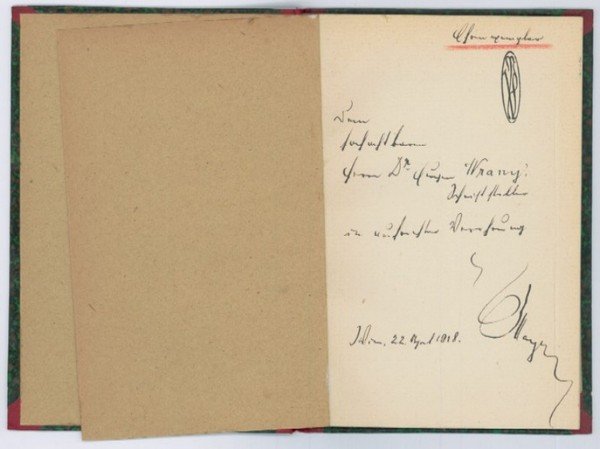 Ehrenexemplar
Dem
hochachtbaren
Herrn Dr. Eugen Wrany,
Schriftsteller
in aufrichter Verehrung
Mayer
Wien, 22. April 1918.